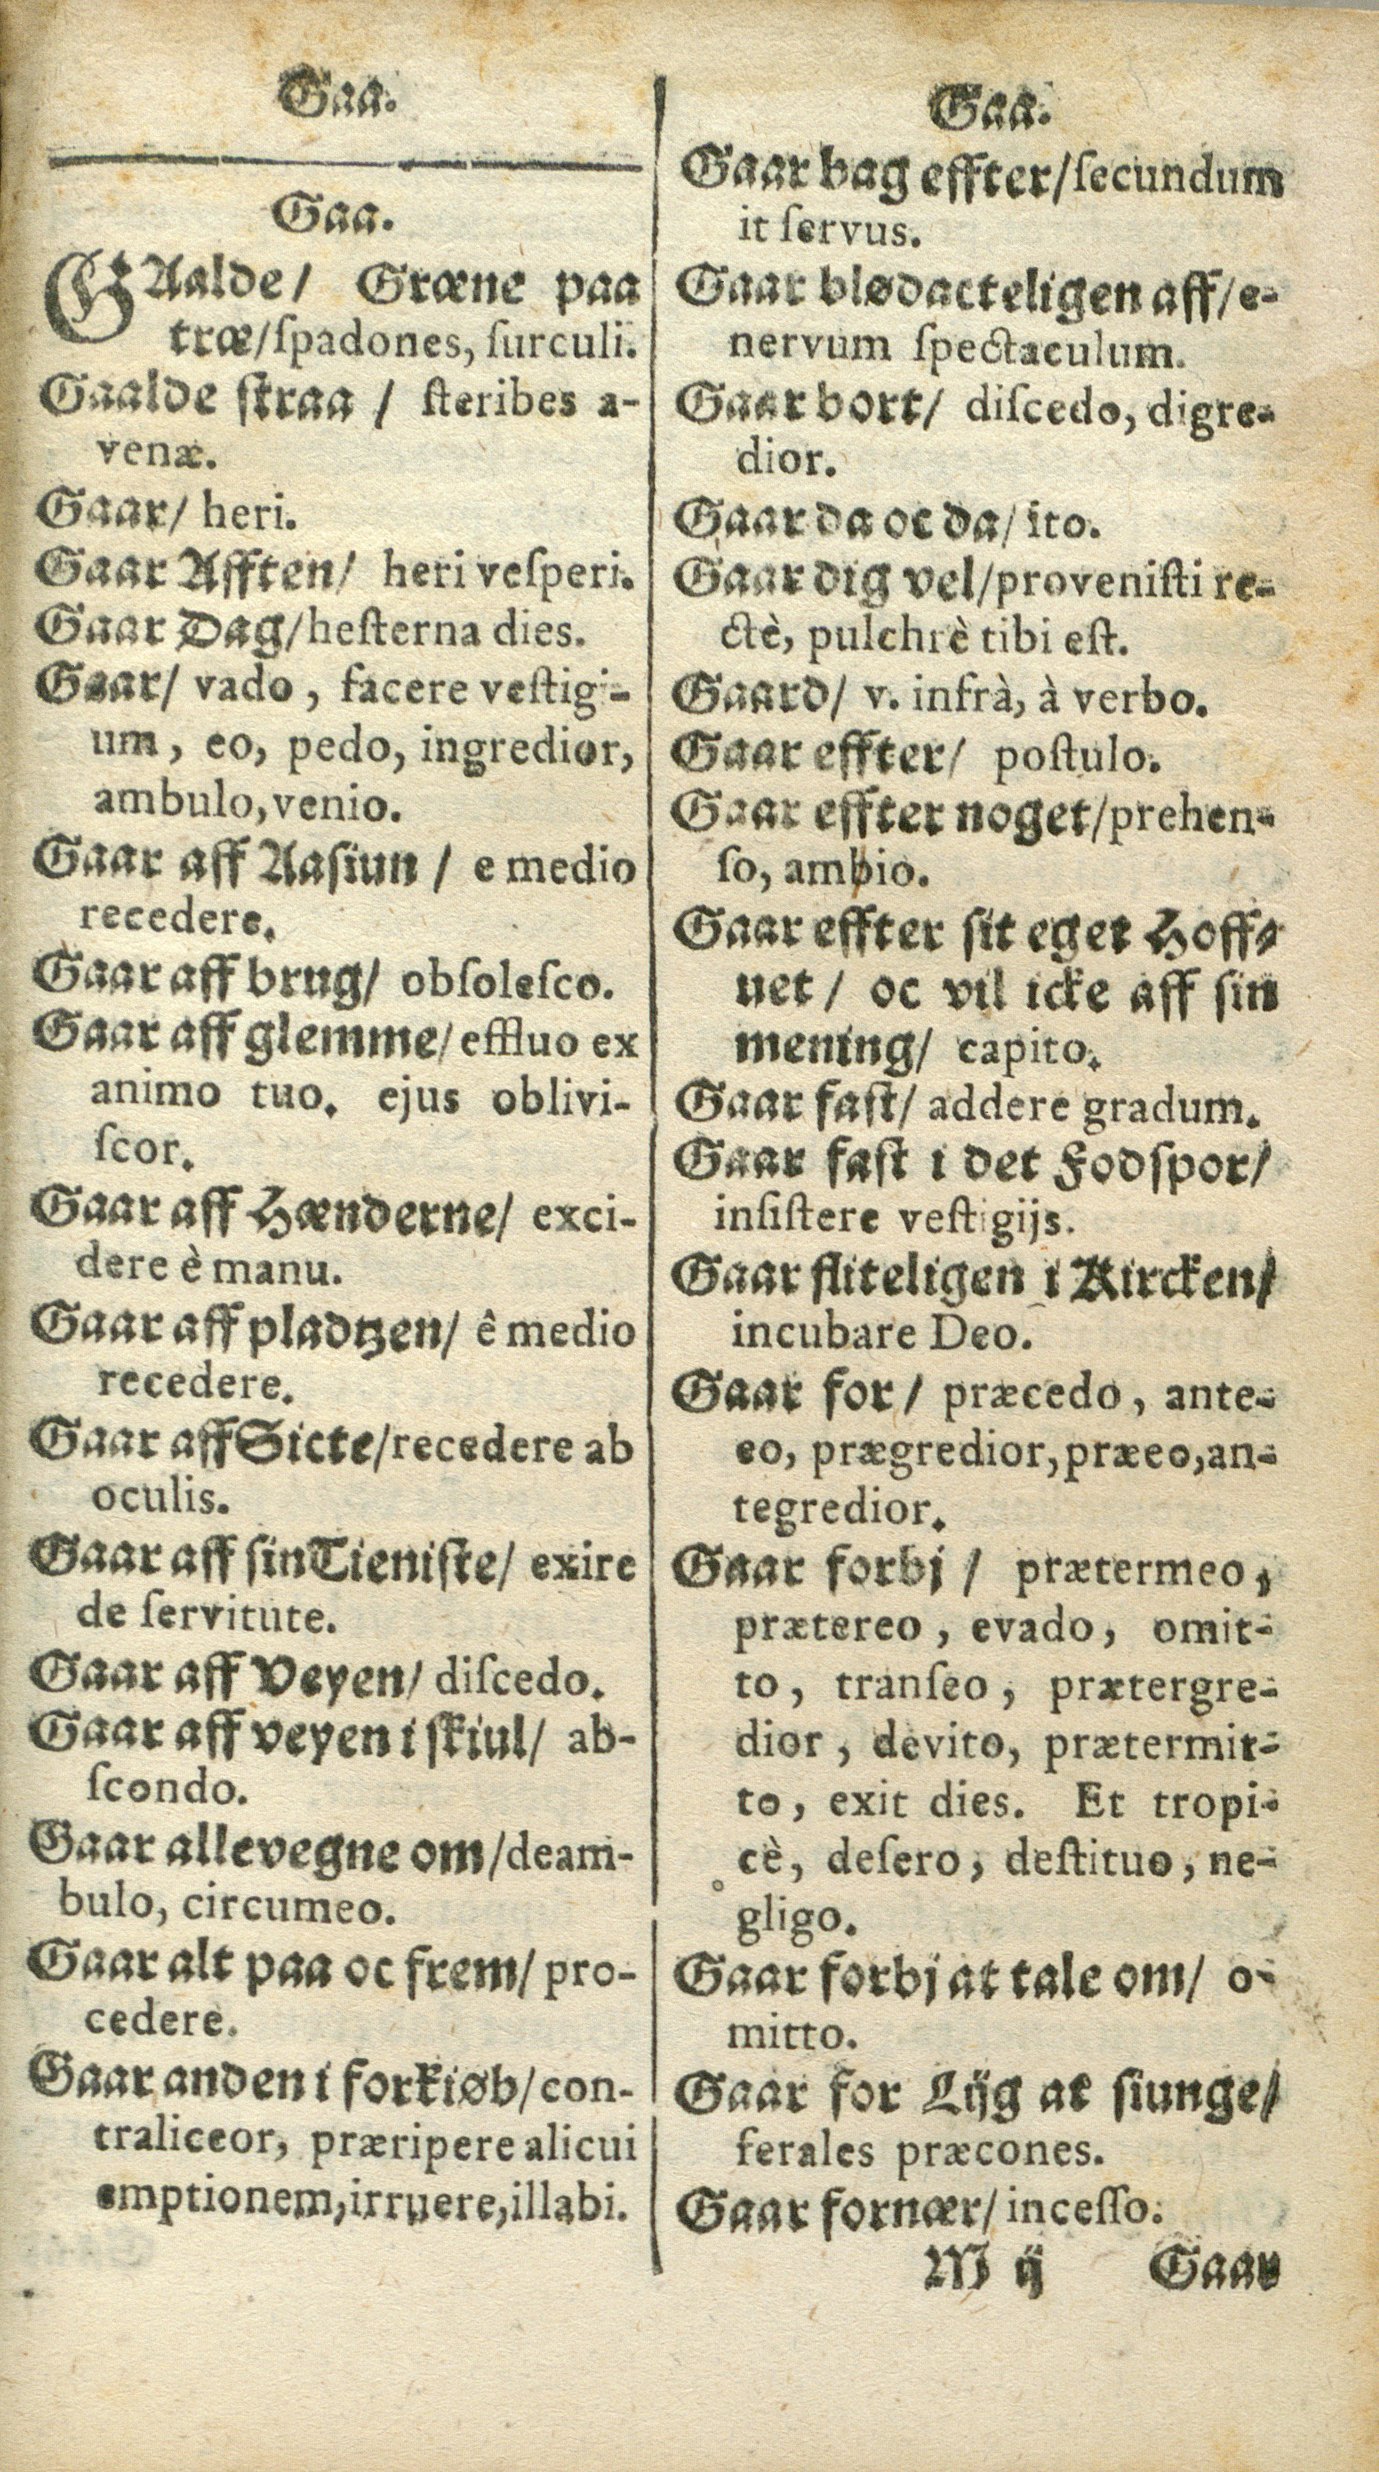 Gaa.
Gaa.
GAalde/ Græne paa
træ/ſpadones, ſurculi.
Gaalde ſtraa / ſteribes a-
venæ.
Gaar/ heri.
Gaar Afften/ heri veſperi.
Gaar Dag/heſterna dies.
Gaar/ vado, facere veſtigi-
um, eo, pedo, ingredior,
ambulo,venio.
Gaar aff Aaſiun / e medio
recedere.
Gaar aff brug/ obſoleſco.
Gaar aff glemme/effluo ex
animo tuo. ejus oblivi-
ſcor.
Gaar aff Hænderne/ exci-
dere è manu.
Gaar aff pladtzen/ ê medio
recedere.
Gaar aff Sicte/recedere ab
oculis.
Gaar aff ſin Tieniſte/ exire
de ſervitute.
Gaar aff Veyen/ diſcedo.
Gaar aff veyen i ſkiul/ ab-
ſcondo.
Gaar allevegne om/deam-
bulo, circumeo.
Gaar alt paa oc frem/ pro-
cedere.
Gaar anden i forkiøb/con-
traliceor, præripere alicui
emptionem,irruere,illabi.
Gaa.
Gaar bag effter/ſecundum
it ſervus.
Gaar blødacteligen aff/e-
nervum ſpectaculum.
Gaar bort/ diſcedo, digre-
dior.
Gaar da oc da/ ito.
Gaar dig vel/proveniſti re-
ctè, pulchrè tibi eſt.
Gaard/ v. infrà, à verbo.
Gaar effter/ poſtulo.
Gaar effter noget/prehen-
ſo, ambio.
Gaar effter ſit eget Hoff-
uet / oc vil icke aff ſin
mening/ capito.
Gaar faſt/ addere gradum.
Gaar faſt i det Fodſpor/
inſiſtere veſtigijs.
Gaar fliteligen i Kircken/
incubare Deo.
Gaar for / præcedo, ante-
eo, prægredior,præeo,an-
tegredior.
Gaar forbj / prætermeo,
prætereo, evado, omit-
to, tranſeo, prætergre-
dior, devito, prætermit-
to, exit dies. Et tropi-
cè, deſero, deſtituo, ne-
gligo.
Gaar forbj at tale om/ o-
mitto.
Gaar for Lijg at ſiunge/
ferales præcones.
Gaar fornær/ inceſſo.
M ij Gaar